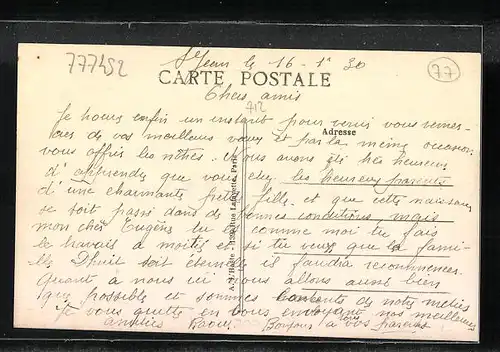 777452
St Jean le 16-1-30
CARTE POSTALE
77
Chers amis
712
Je trouve enfin un instant pour venir vous remer-
cier de vos meilleurs vœux et par la même occasion
Adresse
vous offrir les nôtres. Nous avons été très heureux
d'apprendre que vous etiez les heureux parents
d'une charmante petite fille et que cette naissance
se soit passé dans de bonnes conditions, mais
mon cher Eugène tu es comme moi tu fais
le travail à moitié et si tu veux que la fami-
lle soit il faudra recommencer.
Quant à nous ici nous allons aussi bien
que possible et sommes contents de notre métier
Je vous quitte en vous envoyant nos meilleures
amitiés Raoul Bonjour à vos parents
A. L'Hoste - 112, Rue Lafayette, Paris